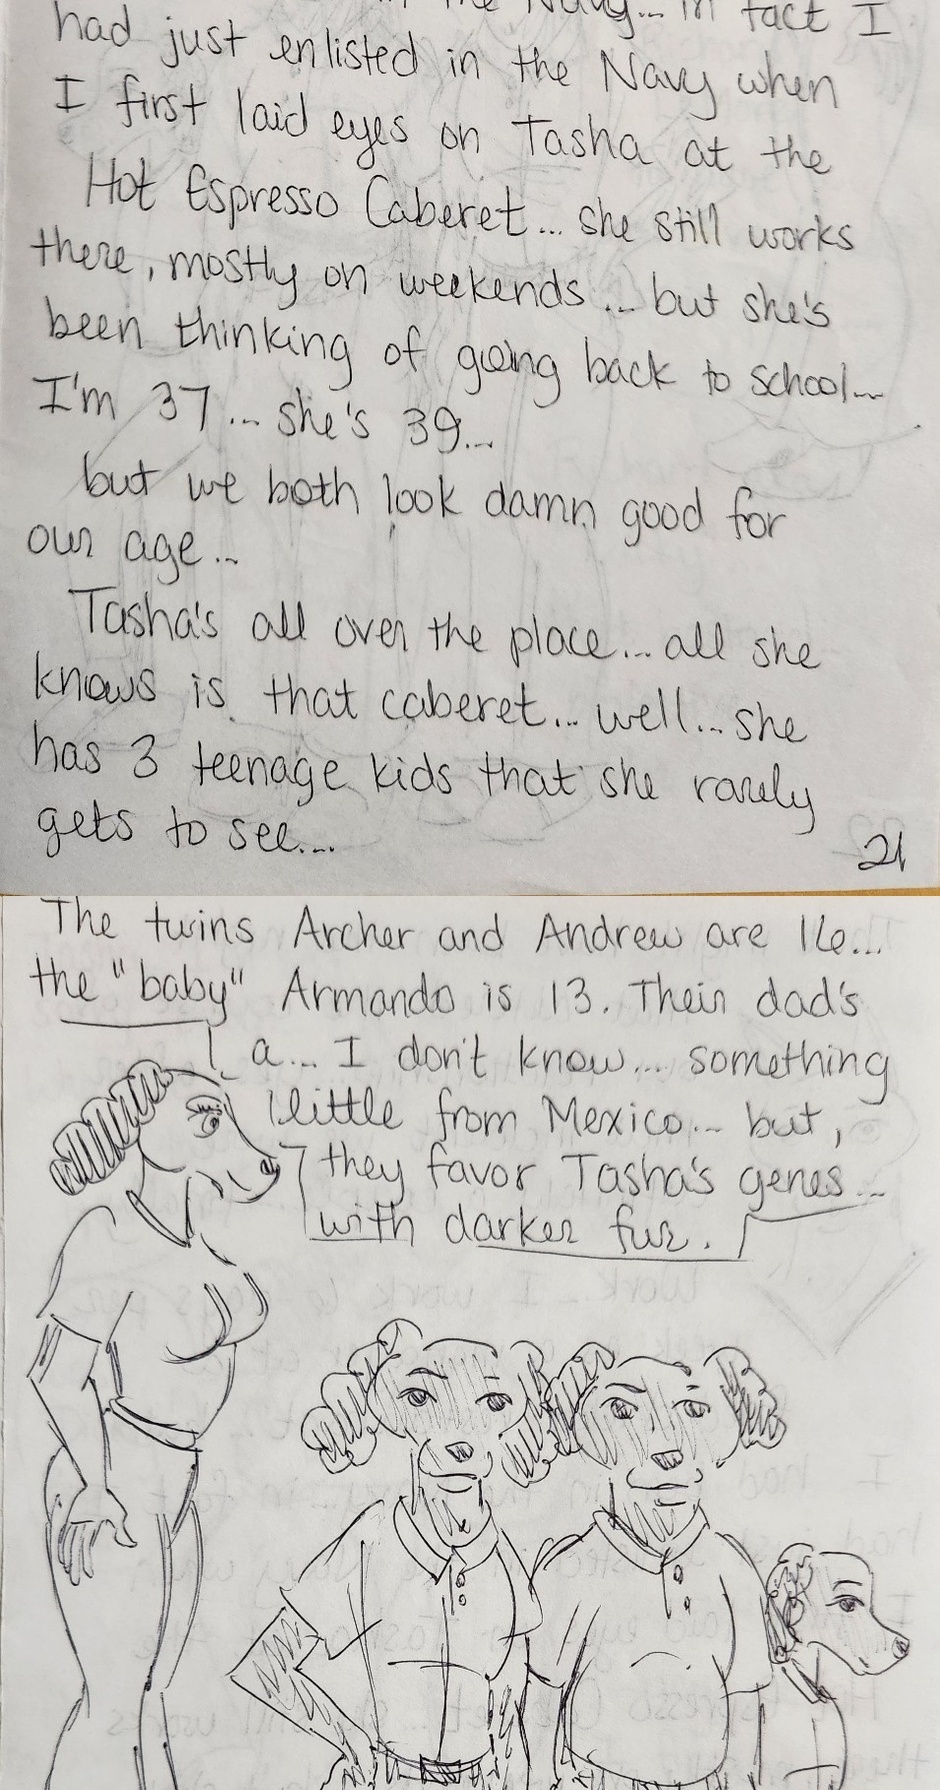 in the Navy... in fact I
had just enlisted in the Navy when
I first laid eyes on Tasha at the
Hot Espresso Caberet... she still works
there, mostly on weekends... but she's
been thinking of going back to school...
I'm 37... she's 39...
but we both look damn good for
our age...
Tasha's all over the place... all she
knows is that caberet... well... she
has 3 teenage kids that she rarely
gets to see...
21
The twins Archer and Andrew are 16...
the "baby" Armando is 13. Their dad's
a... I don't know... something
little from Mexico... but,
they favor Tasha's genes...
with darker fur.